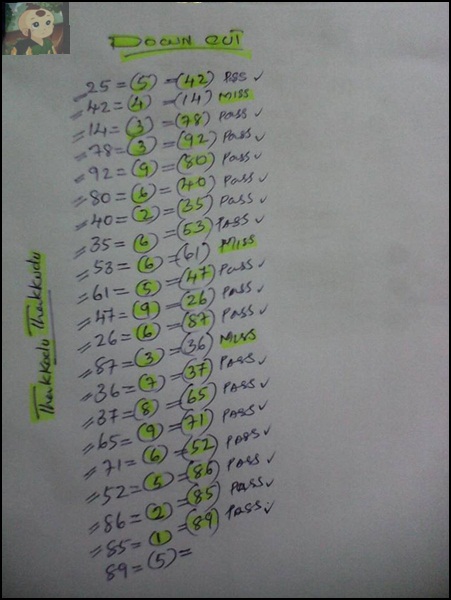 DOWN CUT
25=(5)=(42) PASS ✓
42=(4)=(14) MISS
14=(3)=(78) PASS ✓
78=(3)=(92) PASS ✓
92=(9)=(80) PASS ✓
80=(6)=(40) PASS ✓
40=(2)=(35) PASS ✓
35=(6)=(53) PASS ✓
53=(6)=(61) MISS
61=(5)=(47) PASS ✓
47=(9)=(26) PASS ✓
26=(6)=(87) PASS ✓
87=(3)=(36) MISS
36=(7)=(37) PASS ✓
37=(8)=(65) PASS ✓
65=(9)=(71) PASS ✓
71=(6)=(52) PASS ✓
52=(5)=(86) PASS ✓
86=(2)=(85) PASS ✓
85=(1)=(89) PASS ✓
89=(5)=
Thakkudu Thakkudu